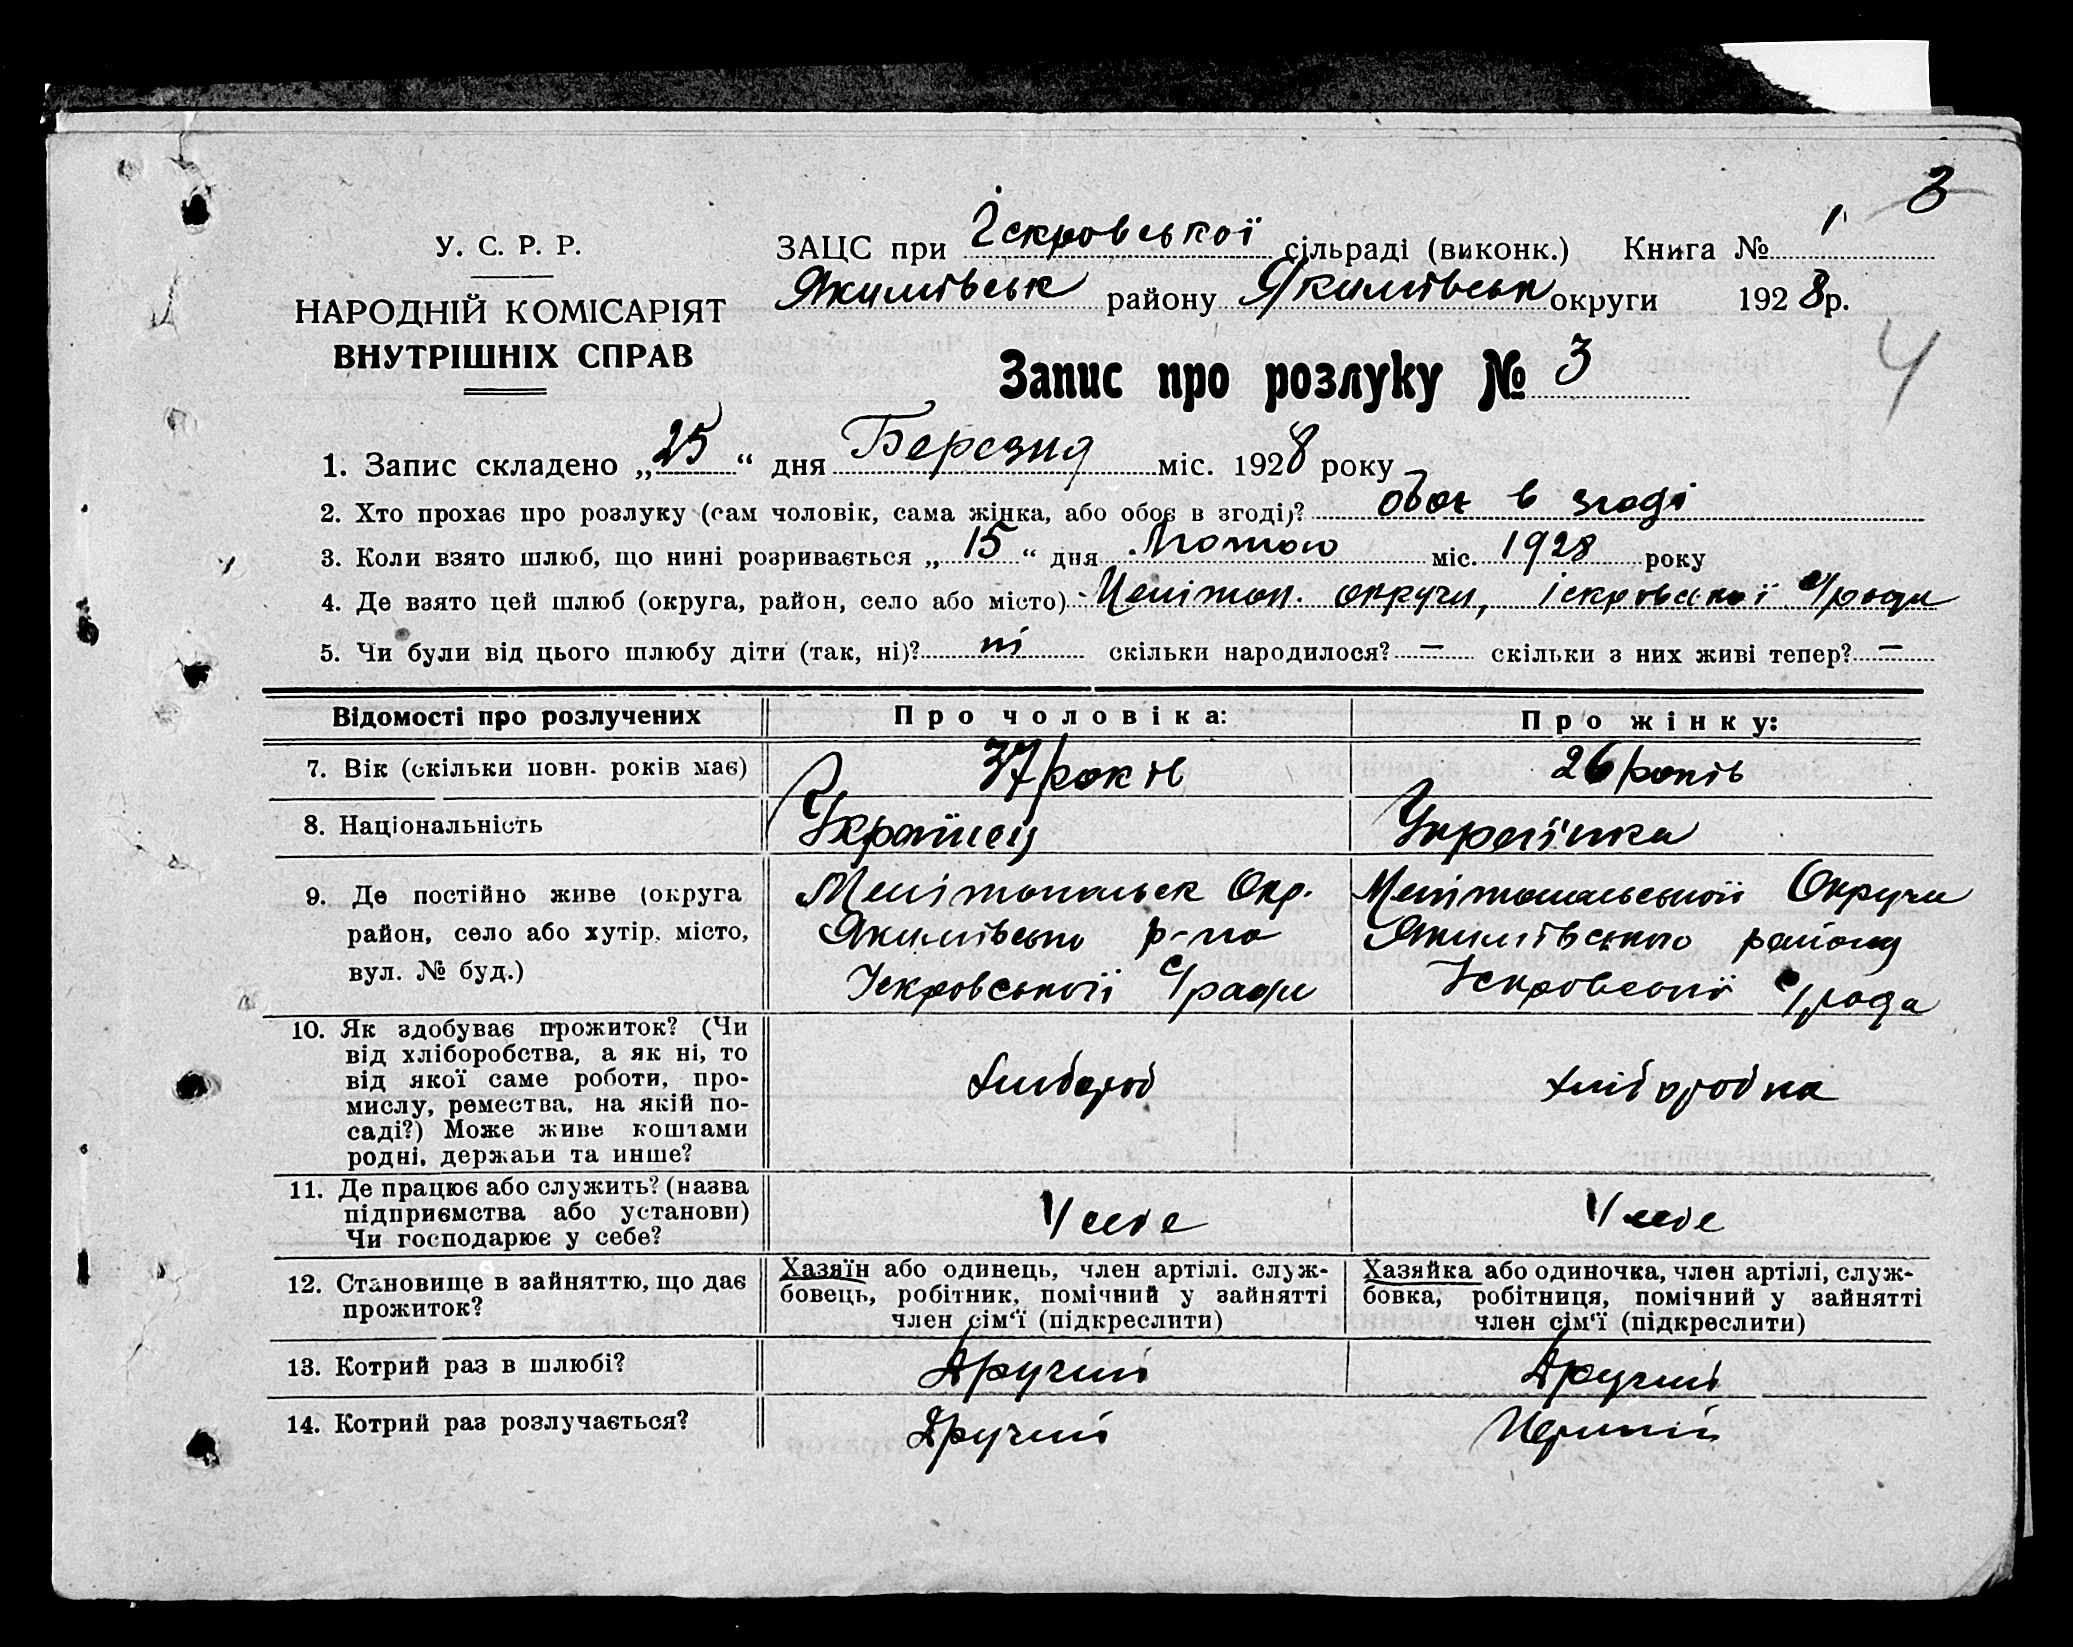 3
У. С. Р. Р.
НАРОДНІЙ КОМІСАРІЯТ
ВНУТРІШНІХ СПРАВ
ЗАЦС при Іскровської сільраді (виконк.) Книга № 1
Якимівськ району Якимівськ округи 1928 р.
4
Запис про розлуку № 3
1. Запис складено „25“ дня Березня міс. 1928 року
2. Хто прохає про розлуку (сам чоловік, сама жінка, або обоє в згоді)? обоє в згоді
3. Коли взято шлюб, що нині розривається „15“ дня Лютого міс. 1928 року
4. Де взято цей шлюб (округа, район, село або місто) Меліտոп. округи, іскровської с/ради
5. Чи були від цього шлюбу діти (так, ні)? ні скільки народилося? — скільки з них живі тепер? —
Відомості про розлучених Про чоловіка: Про жінку:
7. Вік (скільки повн. років має) 37 років 26 років
8. Національність Українец Українка
9. Де постійно живе (округа
район, село або хутір, місто,
вул. № буд.)
Мелітопольск Окр.
Якимівсько р-но
Іскровської с/ради
Мелітопольської Округи
Якимівського району
Іскровської с/рада
10. Як здобуває прожиток? (Чи
від хліборобства, а як ні, то
від якої саме роботи, про-
мислу, ремества, на якій по-
саді?) Може живе коштами
родні, держави та инше?
Хлибороб
хліборобка
11. Де працює або служить? (назва
підприємства або установи)
Чи господарює у себе?
У себе
У себе
12. Становище в зайняттю, що дає
прожиток?
Хазяїн або одинець, член артілі. служ-
бовець, робітник, помічний у зайнятті
член сім‘ї (підкреслити)
Хазяйка або одиночка, член артілі, служ-
бовка, робітниця, помічний у зайнятті
член сім‘ї (підкреслити)
13. Котрий раз в шлюбі? Другий Другий
14. Котрий раз розлучається? Другий Перший